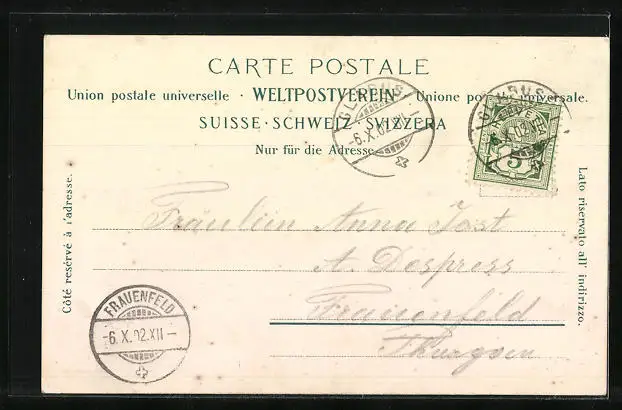 CARTE POSTALE
Union postale universelle · WELTPOSTVEREIN · Unione postale universale.
SUISSE · SCHWEIZ · SVIZZERA
Nur für die Adresse
GLARUS
-6.X.02.XII
GLARUS
X.02
HELVETIA
5
Côté reservé à l'adresse.
Lato riservato all' indirizzo.
Fräulein Anna Jost
A. Despress
Frauenfeld
Thurgau
FRAUENFELD
-6.X.02.XII-